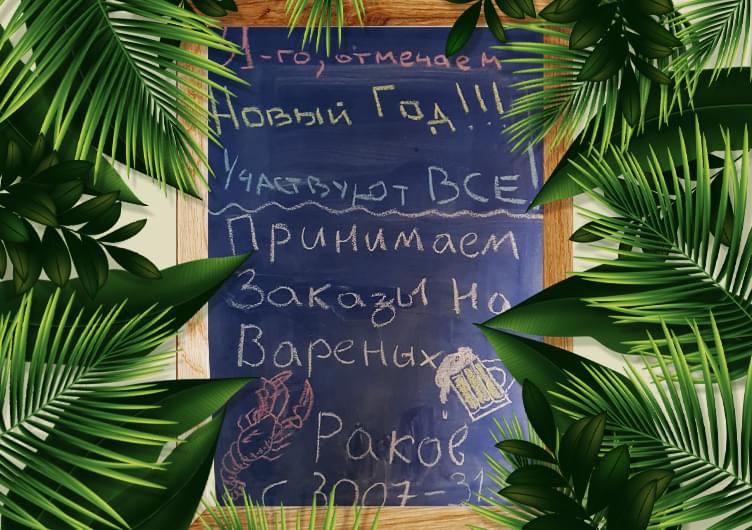 31-го, отмечаем
Новый Год!!!
Участвуют ВСЕ!
Принимаем
Заказы на
Вареных
Раков